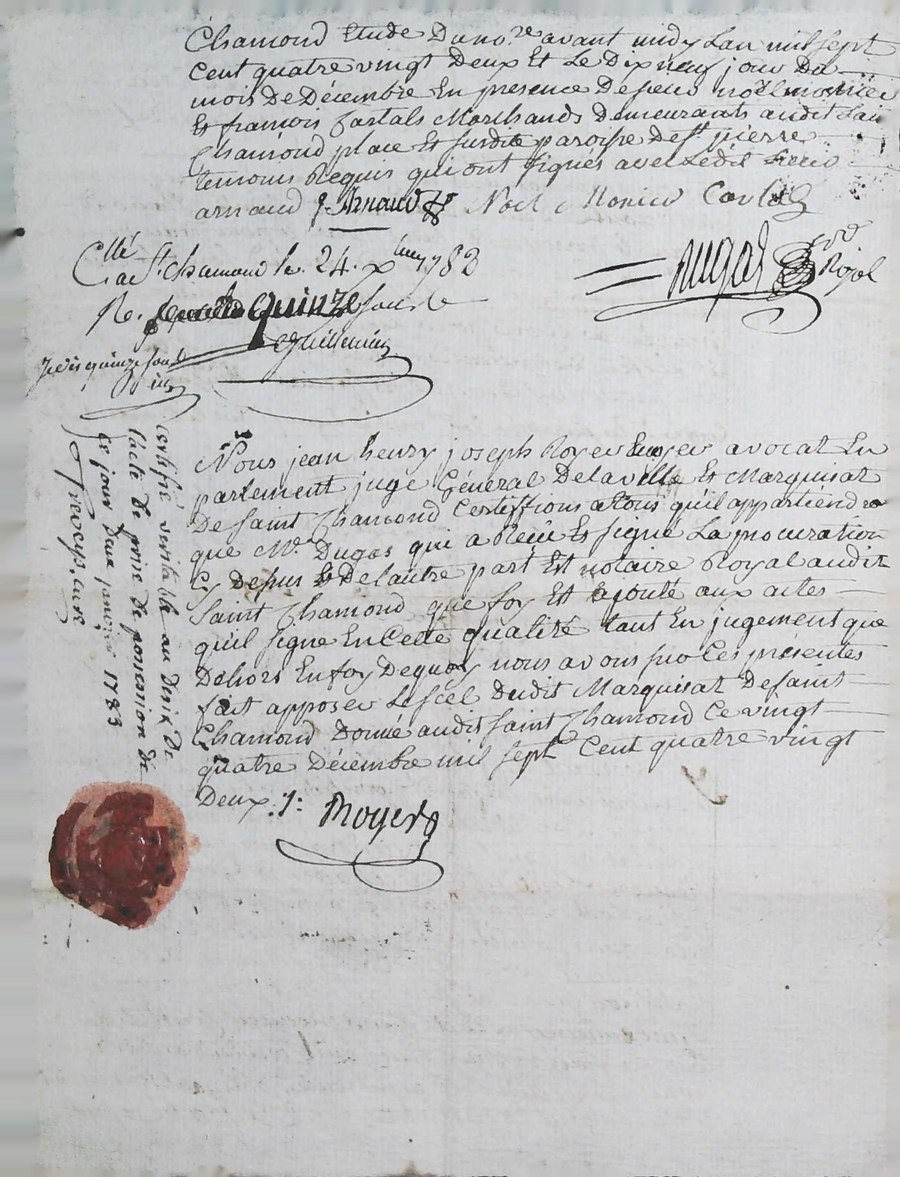 Chamond Etude Du no.re avant midy Lan mil sept
Cent quatre vingt Deux Et Le Dix neuf jour Du
mois De Décembre En presence De sieurs noël monier
Et francois Marchands Demeurants audit San
Chamond place Et susdite paroisse De st. pierre
temoins Requis qui ont signés avec Ledit sieur
arnaud J. Arnaud Noel Monier
Dugas Royal
Cllé a St. chamond le 24. xbre 1782
R. quinze sous
guillemin
quinze sous
Nous jean henry joseph Royer Ecuyer avocat En
parlement juge General De la ville Et Marquisat
De Saint Chamond Certiffions a tous quil appartiendra
que Mr. Dugas qui a Reçu Et signé La procuration
Cy Desus Et De lautre part Est notaire Royal audit
Saint Chamond que foy Est ajouté aux actes
qu'il signe En Cette qualité tant En jugement que
Dehors En foy De quoy nous avons sur Ces présentes
fait apposer Le scel Dudit Marquisat De saint
Chamond Donné audit Saint Chamond Ce vingt
quatre Décembre mil sept Cent quatre vingt
Deux ./:
Royer
certifié veritable au desir de
l'acte de prise de possession de
ce jour deux janvier 1783